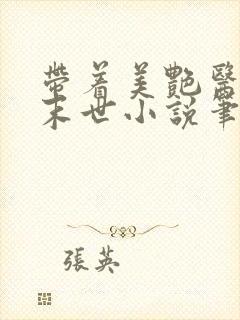 帶着美艷醫
末世小説筆
張英